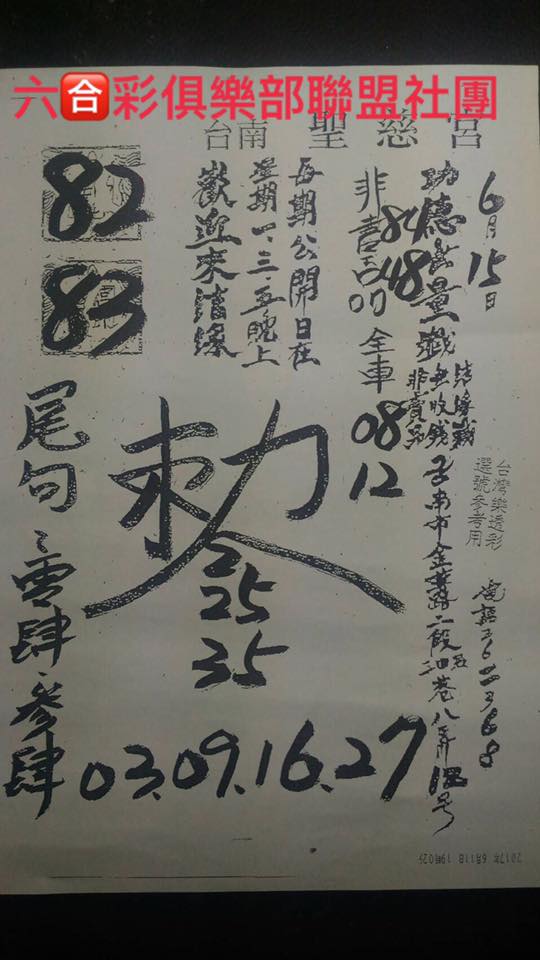 六合彩俱樂部聯盟社團
台南 聖慈宮
6月15日
功德無量
非賣品
84
48
全車
08
12
結緣
無收錢
非賣品
台灣樂透彩
選號參考用
台南市金華路二段
巷八弄12号
每期公開日在
星期一、三、五晚上
歡迎來結緣
82
83
敕
2
25
35
尾句：零肆、參肆
03.09.16.27
2017年 6月11日 19時02分